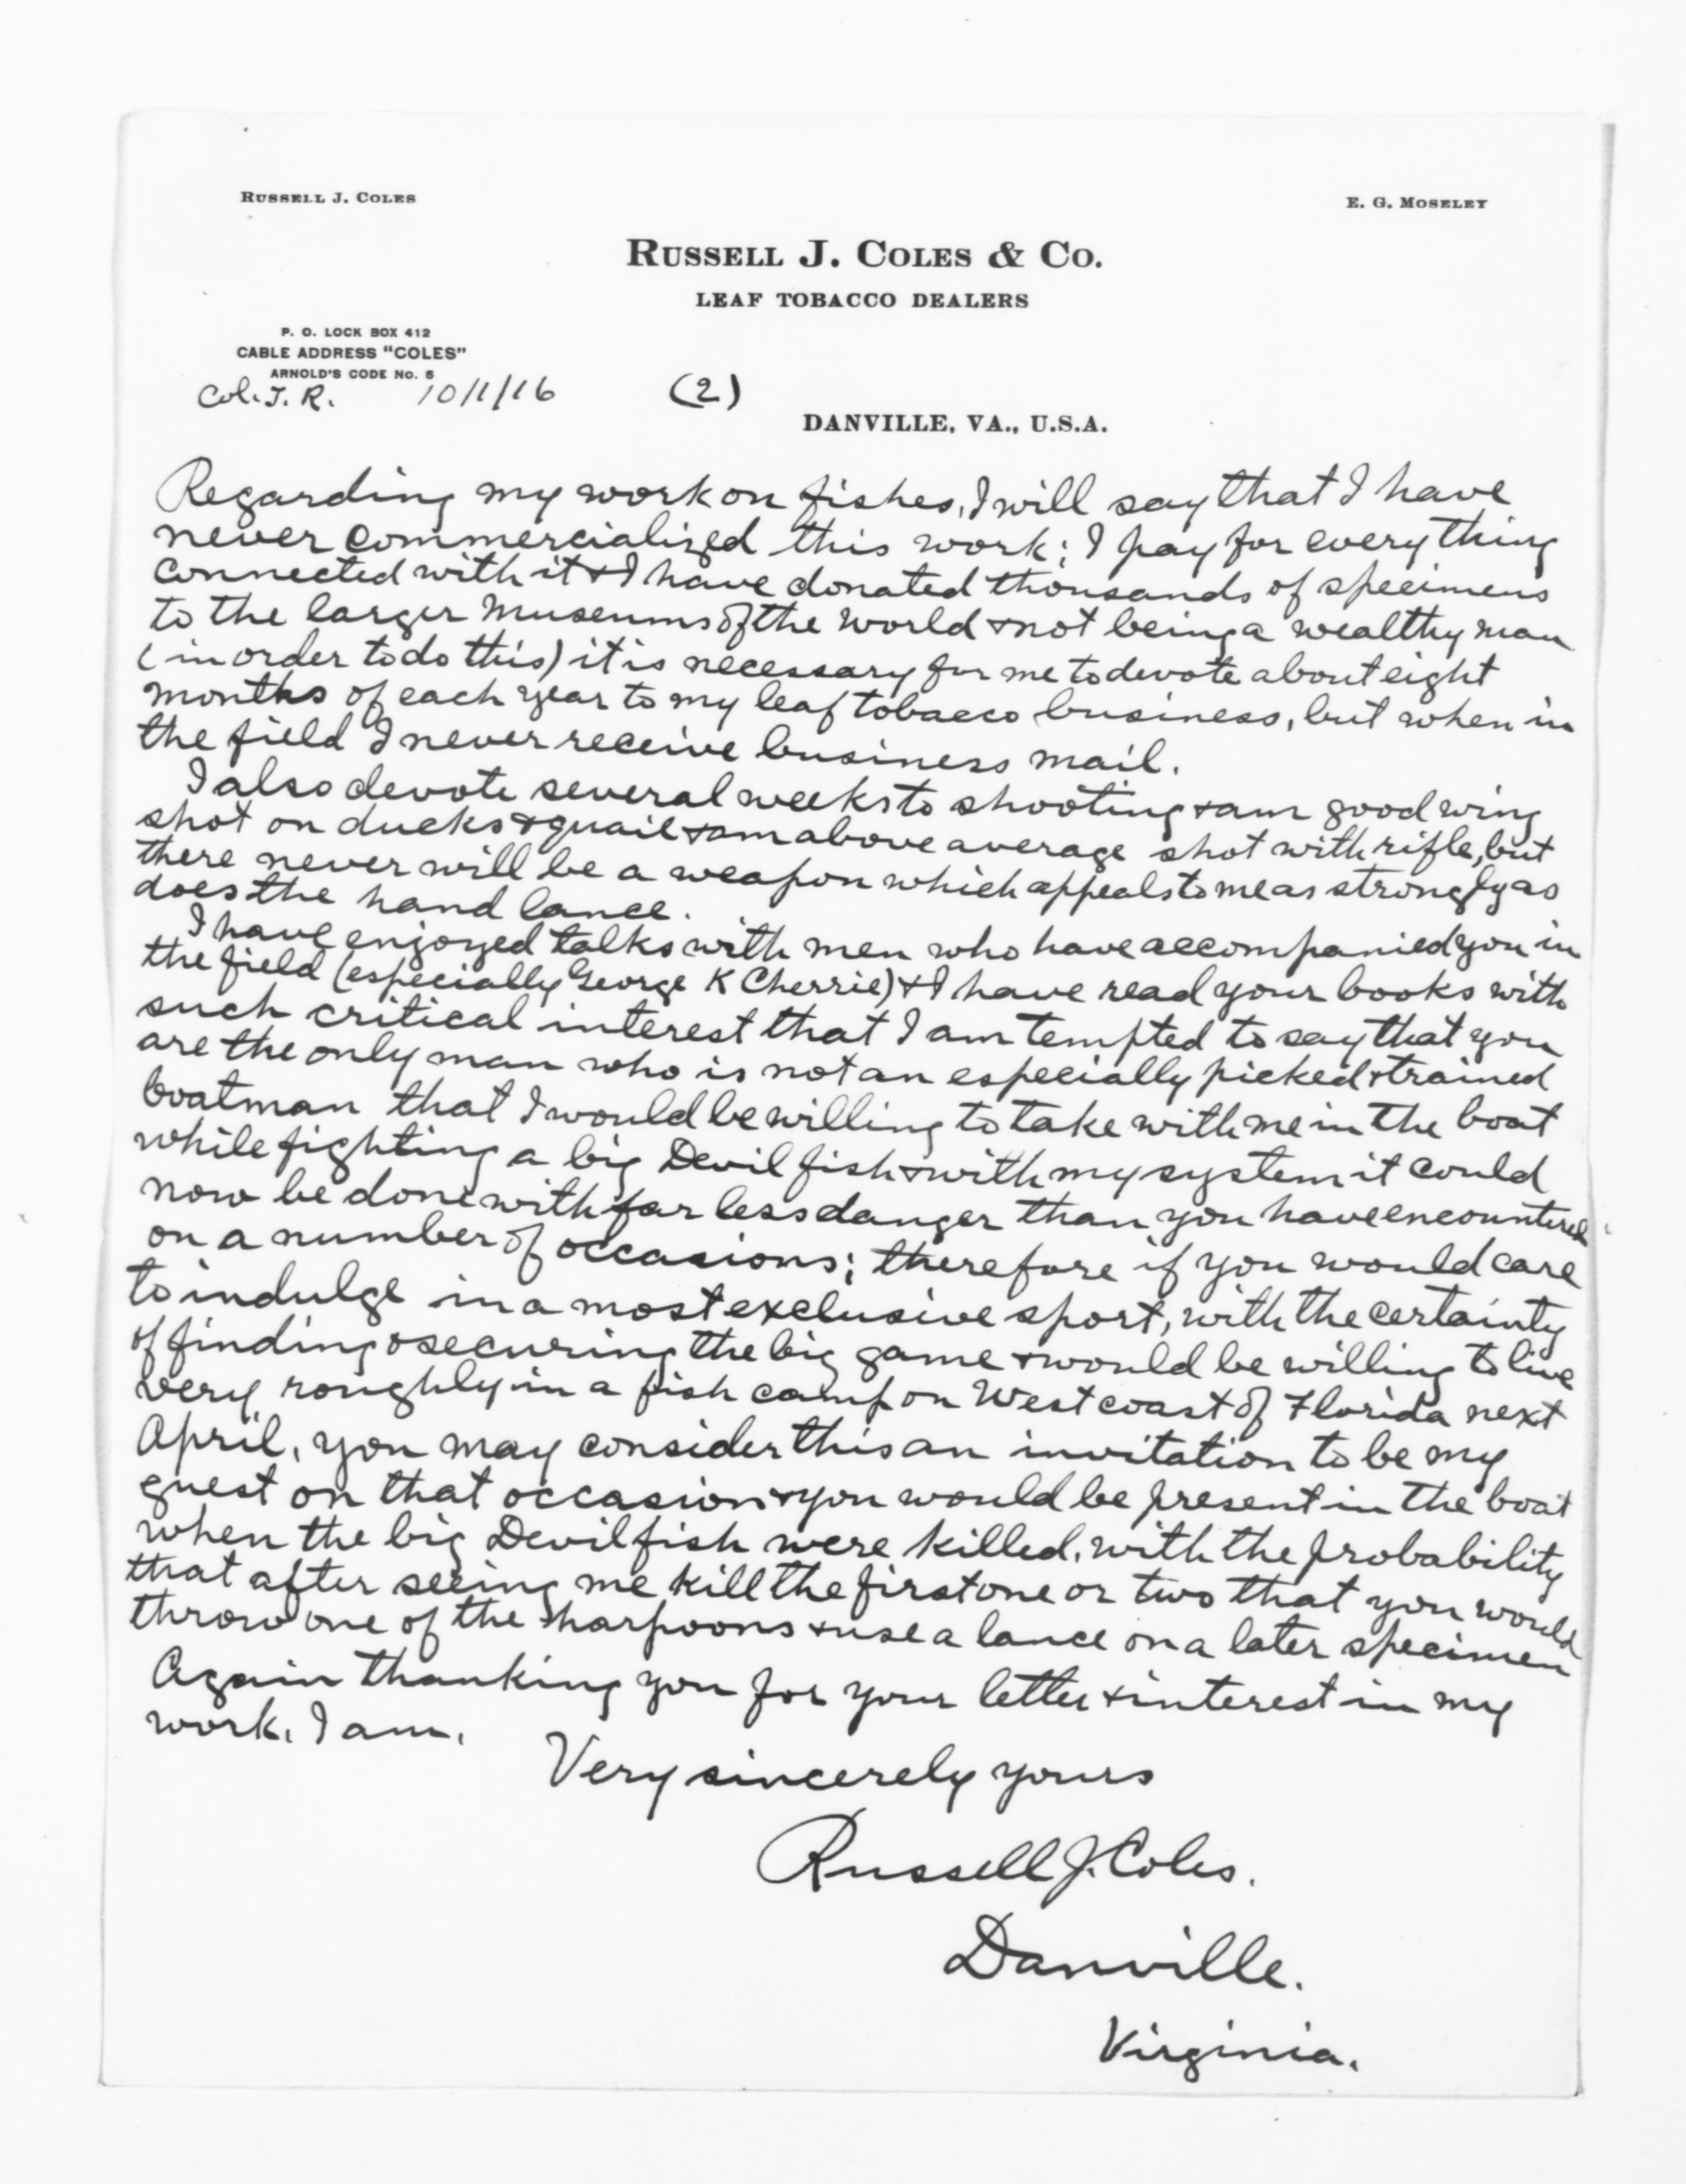 RUSSELL J. COLES
E. G. MOSELEY
RUSSELL J. COLES & CO.
LEAF TOBACCO DEALERS
P. O. LOCK BOX 412
CABLE ADDRESS "COLES"
ARNOLD'S CODE No. 5
Col. T. R. 10/1/16 (2)
DANVILLE, VA., U.S.A.
Regarding my work on fishes, I will say that I have
never commercialized this work; I pay for every thing
connected with it & I have donated thousands of specimens
to the larger Museums of the World & not being a wealthy man
(in order to do this) it is necessary for me to devote about eight
months of each year to my leaf tobacco business, but when in
the field I never receive business mail.
I also devote several weeks to shooting & am good wing
shot on ducks & quail & am above average shot with rifle, but
there never will be a weapon which appeals to me as strongly as
does the hand lance.
I have enjoyed talks with men who have accompanied you in
the field (especially George K Cherrie) & I have read your books with
such critical interest that I am tempted to say that you
are the only man who is not an especially picked & trained
boatman that I would be willing to take with me in the boat
while fighting a big Devil fish & with my system it could
now be done with far less danger than you have encountered
on a number of occasions; therefore if you would care
to indulge in a most exclusive sport, with the certainty
of finding & securing the big game & would be willing to live
very roughly in a fish camp on West coast of Florida next
April, you may consider this an invitation to be my
guest on that occasion & you would be present in the boat
when the big Devilfish were killed, with the probability
that after seeing me kill the first one or two that you would
throw one of the harpoons & use a lance on a later specimen
Again thanking you for your letter & interest in my
work, I am,
Very sincerely yours
Russell J. Coles.
Danville.
Virginia.